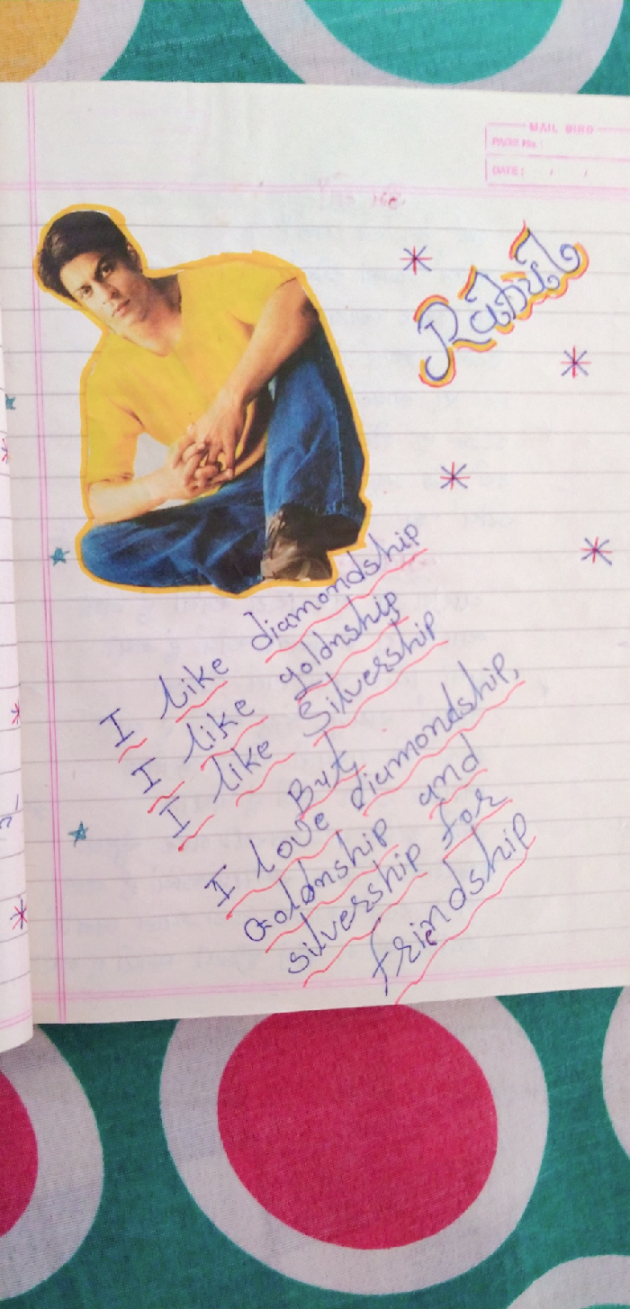 MAIL BIRD
PAGE No. :
DATE : / /
Rahul
I like diamondship
I like goldnship
I like Silvership
But,
I love diamondship,
Goldnship and
silvership for
friendship